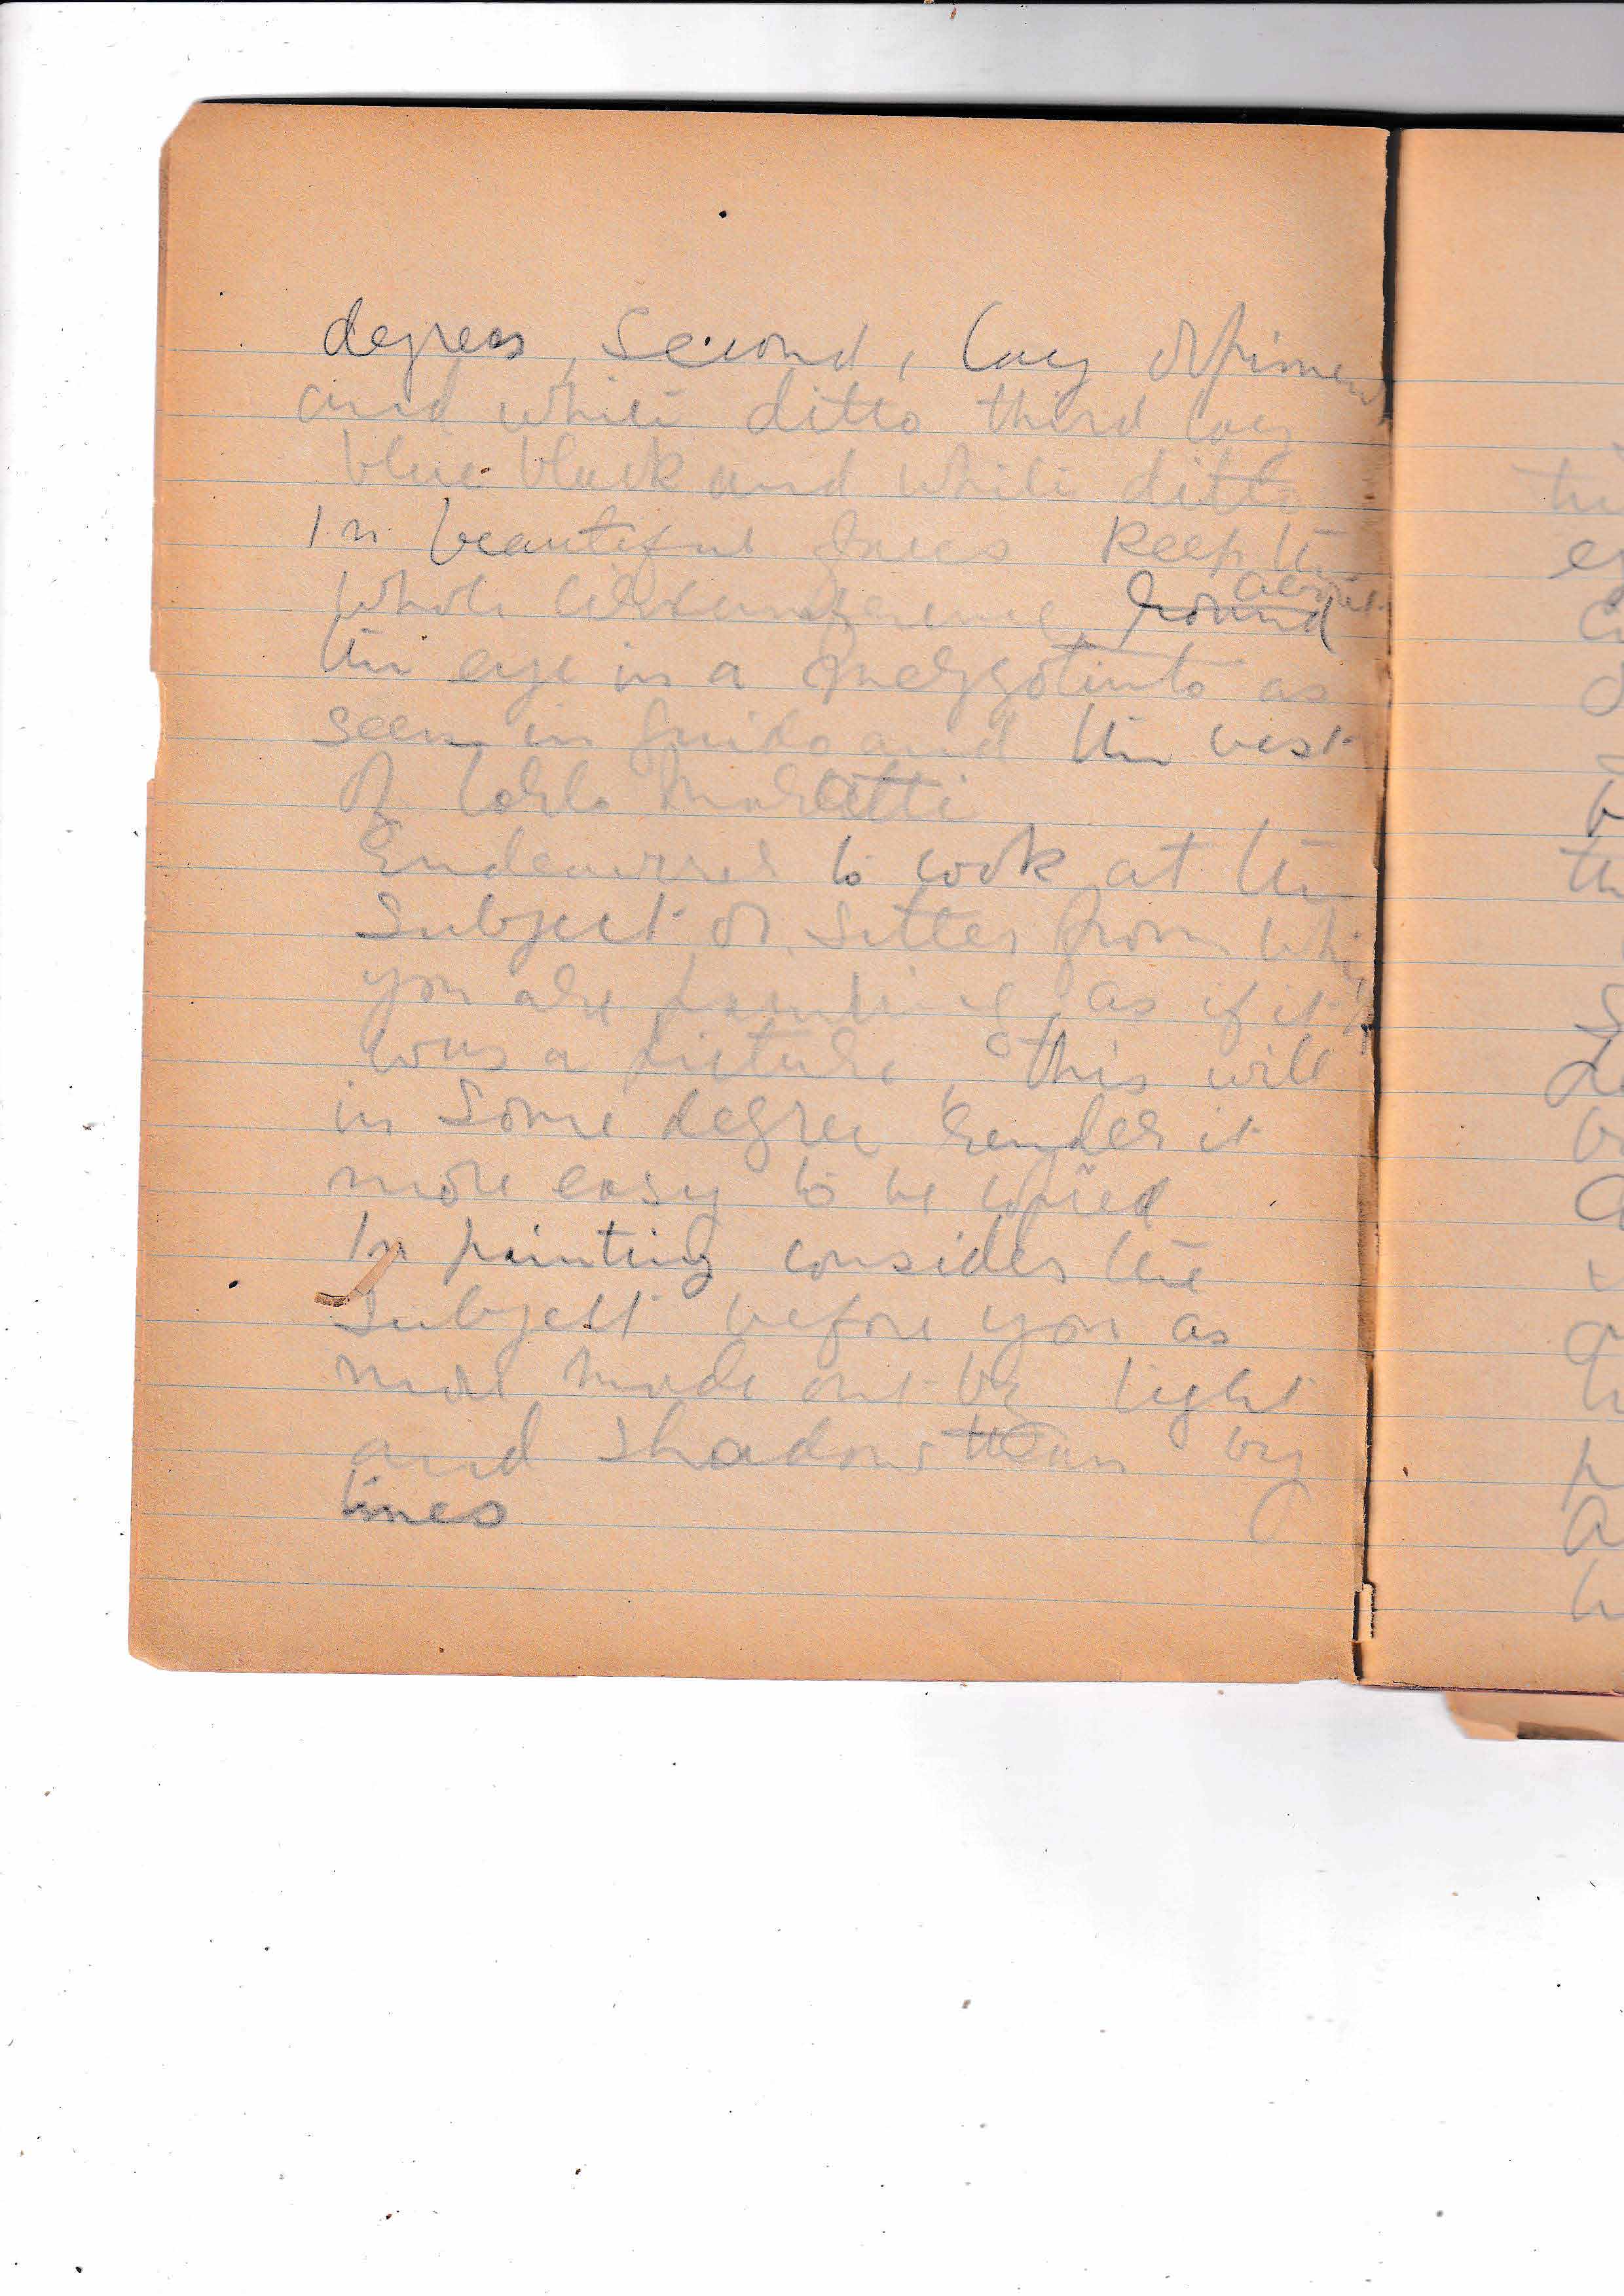 degrees, Second, lay orpiment
and white ditto third lay
blue black and white ditto
In beautiful faces keep the
whole circumference round about
the eye in a mezzotinto as
seen in Guido and the best
of Carlo Maratti
Endeavour to look at the
Subject or Sitter from which
you are painting as if it
was a picture, this will
in Some degree render it
more easy to be copied
In painting consider the
Subject before you as
more made out by light
and shadow than by
lines